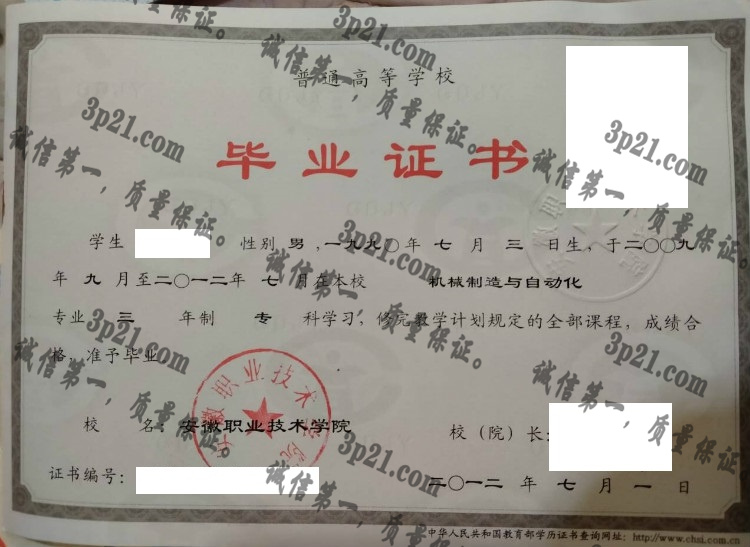 普通高等学校
毕业证书
学生 性别 男 ,一九九〇年 七 月 三 日生，于二〇〇九
年 九 月至二〇一二年 七 月在本校 机械制造与自动化
专业 三 年制 专 科学习，修完教学计划规定的全部课程，成绩合
格，准予毕业。
校 名：安徽职业技术学院
校（院）长：
证书编号：
二〇一二 年 七 月 一 日
中华人民共和国教育部学历证书查询网址：http://www.chsi.com.cn
安徽职业技术学院
3p21.com
诚信第一，质量保证。
3p21.com
诚信第一，质量保证。
3p21.com
诚信第一，质量保证。
3p21.com
诚信第一，质量保证。
3p21.com
诚信第一，质量保证。
3p21.com
诚信第一，质量保证。
3p21.com
诚信第一，质量保证。
3p21.com
诚信第一，质量保证。